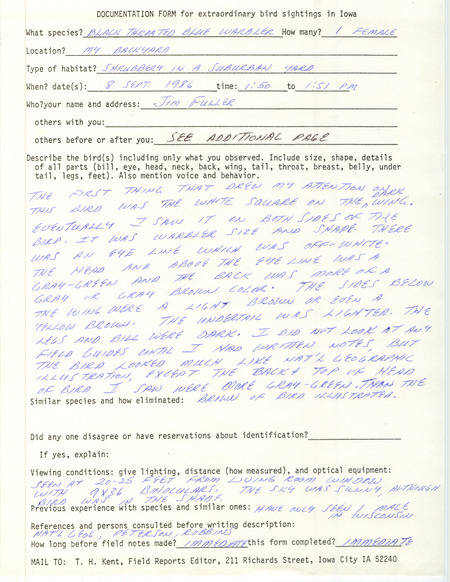 DOCUMENTATION FORM for extraordinary bird sightings in Iowa
What species? BLACK THROATED BLUE WARBLER How many? 1 FEMALE
Location? MY BACKYARD
Type of habitat? SHRUBBERY IN A SUBURBAN YARD
When? date(s): 8 SEPT. 1986 time: 1:50 to 1:51 PM
Who?your name and address: JIM FULLER
others with you:
others before or after you: SEE ADDITIONAL PAGE
Describe the bird(s) including only what you observed. Include size, shape, details
of all parts (bill, eye, head, neck, back, wing, tail, throat, breast, belly, under
tail, legs, feet). Also mention voice and behavior.
THE FIRST THING THAT DREW MY ATTENTION ON
THIS BIRD WAS THE WHITE SQUARE ON THE DARK WING.
EVENTUALLY I SAW IT ON BOTH SIDES OF THE
BIRD. IT WAS WARBLER SIZE AND SHAPE. THERE
WAS AN EYE LINE WHICH WAS OFF-WHITE.
THE HEAD AND ABOVE THE EYE LINE WAS A
GRAY-GREEN AND THE BACK WAS MORE OF A
GRAY OR GRAY BROWN COLOR. THE SIDES BELOW
THE WING WERE A LIGHT BROWN OR EVEN A
YELLOW BROWN. THE UNDERTAIL WAS LIGHTER. THE
LEGS AND BILL WERE DARK. I DID NOT LOOK AT ANY
FIELD GUIDES UNTIL I HAD WRITTEN NOTES, BUT
THE BIRD LOOKED MUCH LIKE NAT'L GEOGRAPHIC
ILLUSTRATION, EXCEPT THE BACK & TOP OF HEAD
OF BIRD I SAW WERE MORE GRAY-GREEN THAN THE
Similar species and how eliminated: BROWN OF BIRD ILLUSTRATED.
Did any one disagree or have reservations about identification?
If yes, explain:
Viewing conditions: give lighting, distance (how measured), and optical equipment:
SEEN AT 20-25 FEET FROM LIVING ROOM WINDOW
WITH 9X36 BINOCULARS. THE SKY WAS SUNNY, ALTHOUGH
BIRD WAS IN THE SHADE.
Previous experience with species and similar ones: HAVE ONLY SEEN 1 MALE
IN WISCONSIN
References and persons consulted before writing description:
NAT'L GEOG, PETERSON, ROBBINS
How long before field notes made? IMMEDIATE this form completed? IMMEDIATE
MAIL TO: T. H. Kent, Field Reports Editor, 211 Richards Street, Iowa City IA 52240